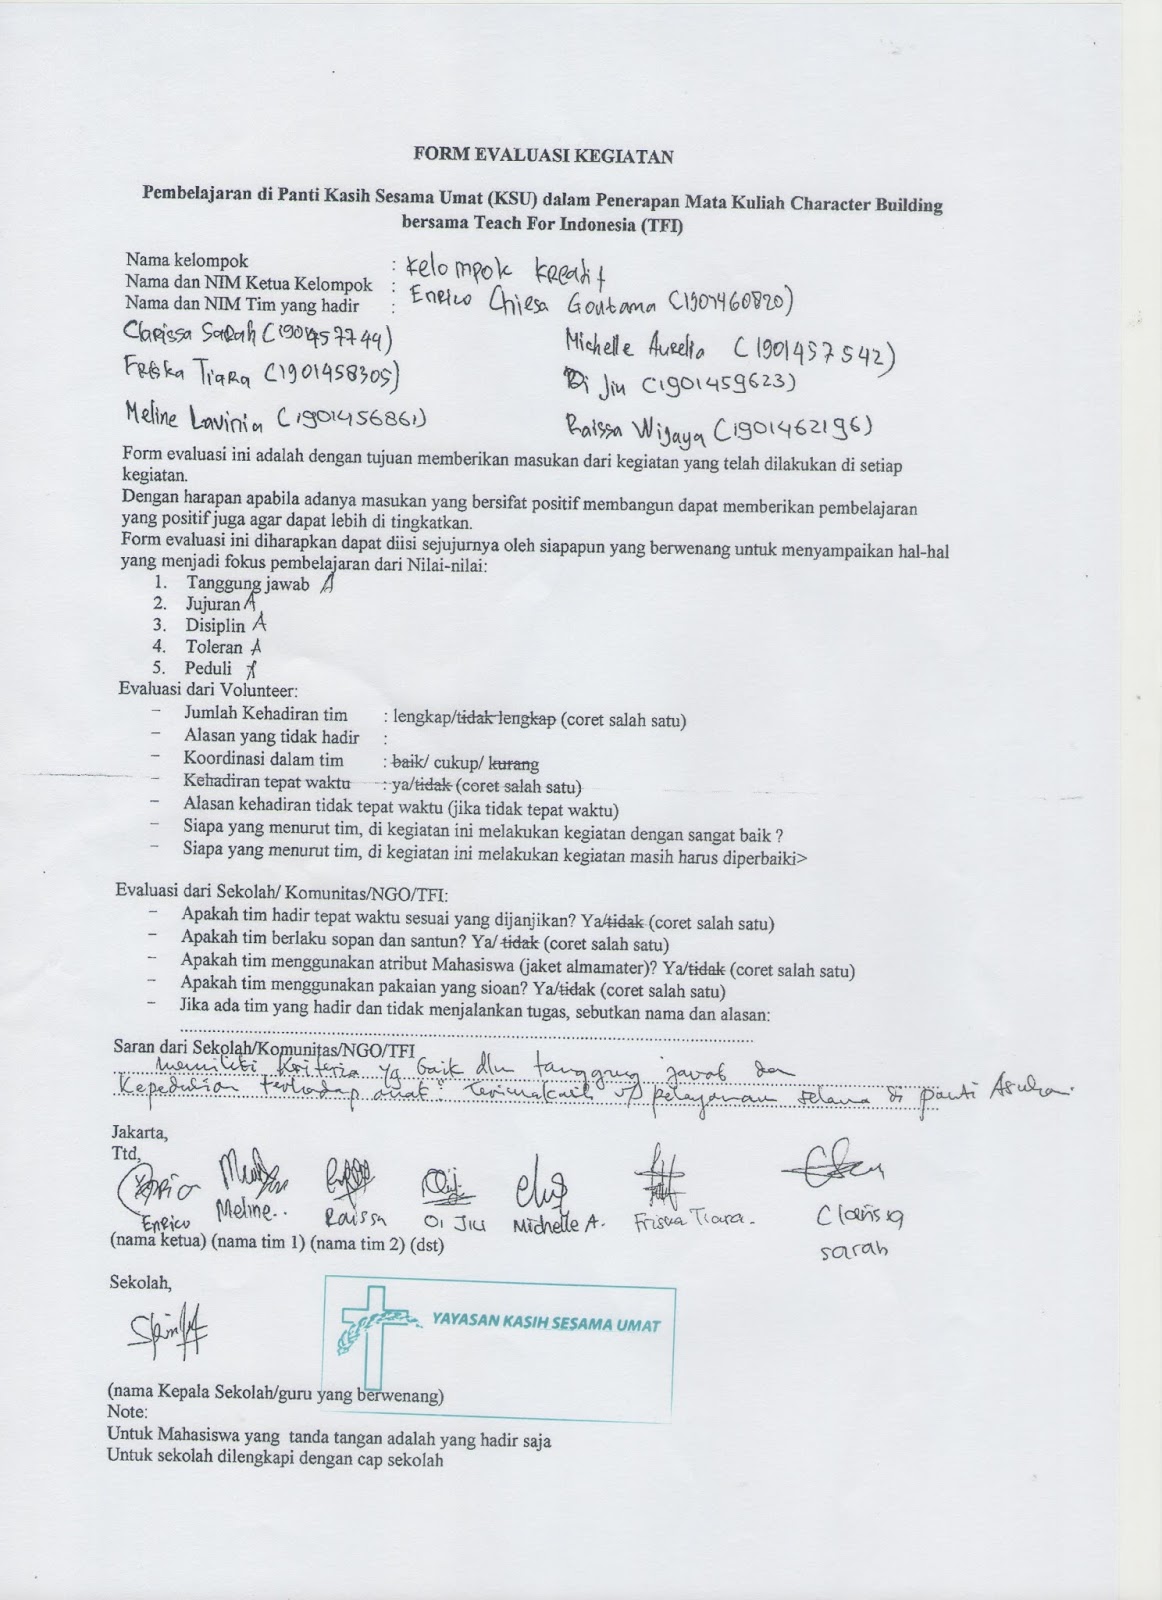 FORM EVALUASI KEGIATAN
Pembelajaran di Panti Kasih Sesama Umat (KSU) dalam Penerapan Mata Kuliah Character Building
bersama Teach For Indonesia (TFI)
Nama kelompok : Kelompok Kreatif
Nama dan NIM Ketua Kelompok : Enrico Chiesa Goutama (1901460820)
Nama dan NIM Tim yang hadir :
Clarissa Sarah (1901457744) Michelle Aurelia (1901457542)
Friska Tiara (1901458305) Oi Jiu (1901459623)
Meline Lavinia (1901456861) Raissa Wijaya (1901462196)
Form evaluasi ini adalah dengan tujuan memberikan masukan dari kegiatan yang telah dilakukan di setiap
kegiatan.
Dengan harapan apabila adanya masukan yang bersifat positif membangun dapat memberikan pembelajaran
yang positif juga agar dapat lebih di tingkatkan.
Form evaluasi ini diharapkan dapat diisi sejujurnya oleh siapapun yang berwenang untuk menyampaikan hal-hal
yang menjadi fokus pembelajaran dari Nilai-nilai:
1. Tanggung jawab A
2. Jujuran A
3. Disiplin A
4. Toleran A
5. Peduli A
Evaluasi dari Volunteer:
- Jumlah Kehadiran tim : lengkap/tidak lengkap (coret salah satu)
- Alasan yang tidak hadir :
- Koordinasi dalam tim : baik/ cukup/ kurang
- Kehadiran tepat waktu : ya/tidak (coret salah satu)
- Alasan kehadiran tidak tepat waktu (jika tidak tepat waktu)
- Siapa yang menurut tim, di kegiatan ini melakukan kegiatan dengan sangat baik ?
- Siapa yang menurut tim, di kegiatan ini melakukan kegiatan masih harus diperbaiki>
Evaluasi dari Sekolah/ Komunitas/NGO/TFI:
- Apakah tim hadir tepat waktu sesuai yang dijanjikan? Ya/tidak (coret salah satu)
- Apakah tim berlaku sopan dan santun? Ya/ tidak (coret salah satu)
- Apakah tim menggunakan atribut Mahasiswa (jaket almamater)? Ya/tidak (coret salah satu)
- Apakah tim menggunakan pakaian yang sioan? Ya/tidak (coret salah satu)
- Jika ada tim yang hadir dan tidak menjalankan tugas, sebutkan nama dan alasan:
Saran dari Sekolah/Komunitas/NGO/TFI
memiliki kriteria yg baik dlm tanggung jawab dan
kepedulian terhadap anak². Terimakasih u/ pelayanan selama di panti Asuhan.
Jakarta,
Ttd,
Enrico Meline.. Raissa Oi Jiu Michelle A. Friska Tiara. Clarissa
sarah
(nama ketua) (nama tim 1) (nama tim 2) (dst)
Sekolah,
YAYASAN KASIH SESAMA UMAT
(nama Kepala Sekolah/guru yang berwenang)
Note:
Untuk Mahasiswa yang tanda tangan adalah yang hadir saja
Untuk sekolah dilengkapi dengan cap sekolah